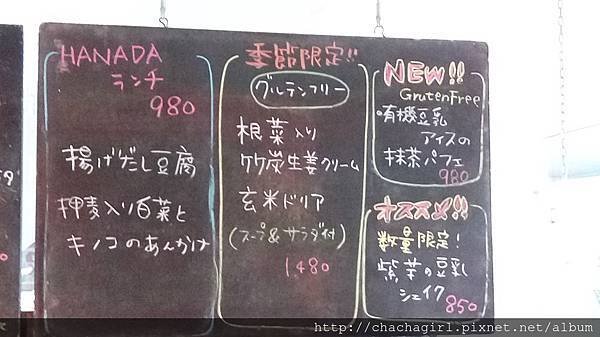 HANADA
ランチ
980
揚げだし豆腐
押麦入り白菜と
キノコのあんかけ
季節限定!!
グルテンフリー
根菜入り
生姜クリーム
玄米ドリア
(スープ&サラダ付)
1480
NEW!!
GrutenFree
有機豆乳
アイスの
抹茶パフェ
980
オススメ!!
数量限定!
紫芋の豆乳
シェイク
850
http://chachagirl.pixnet.net/album